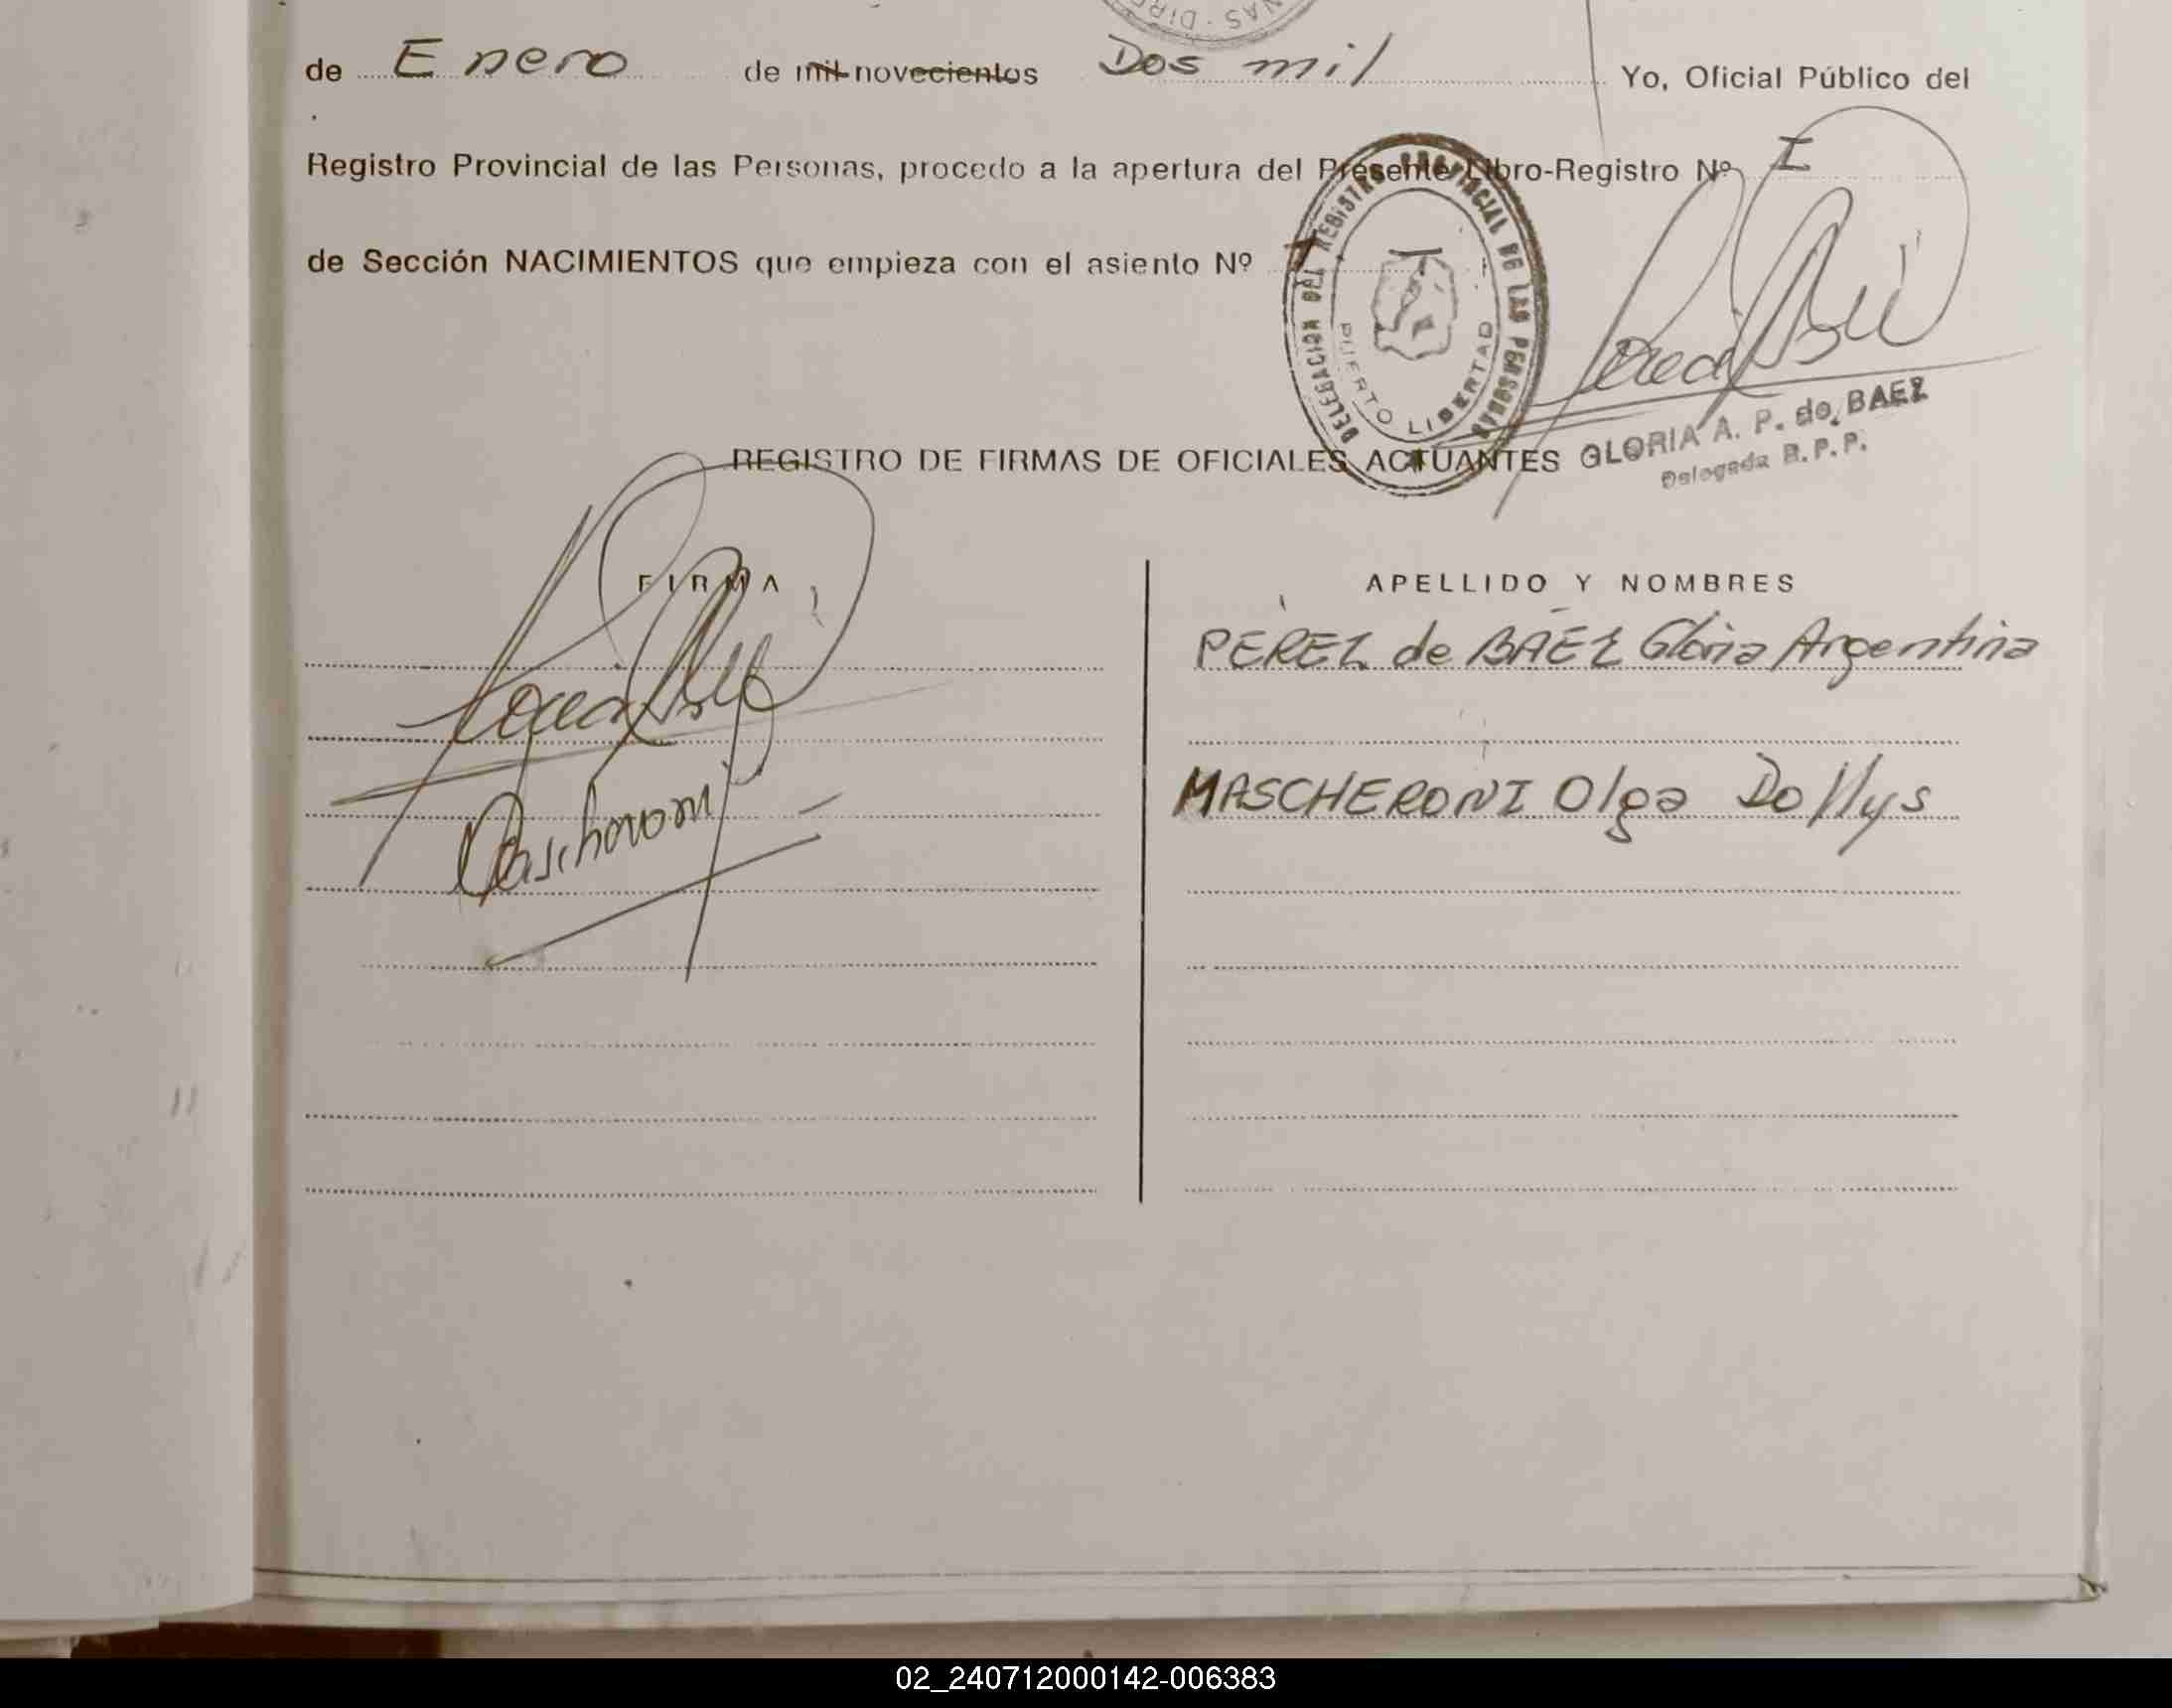 NAS - DIRE
de Enero de mil novecientos Dos mil Yo, Oficial Público del
Registro Provincial de las Personas, procedo a la apertura del Presente Libro-Registro Nº I
de Sección NACIMIENTOS que empieza con el asiento Nº 1
DELEGACION DEL REGISTRO PROVINCIAL DE LAS PERSONAS
PUERTO LIBERTAD
GLORIA A. P. de BAEZ
Delegada R. P. P.
REGISTRO DE FIRMAS DE OFICIALES ACTUANTES
FIRMA
APELLIDO Y NOMBRES
PEREZ de BAEZ Gloria Argentina
Mascheroni
MASCHERONI Olga Dollys
02_240712000142-006383